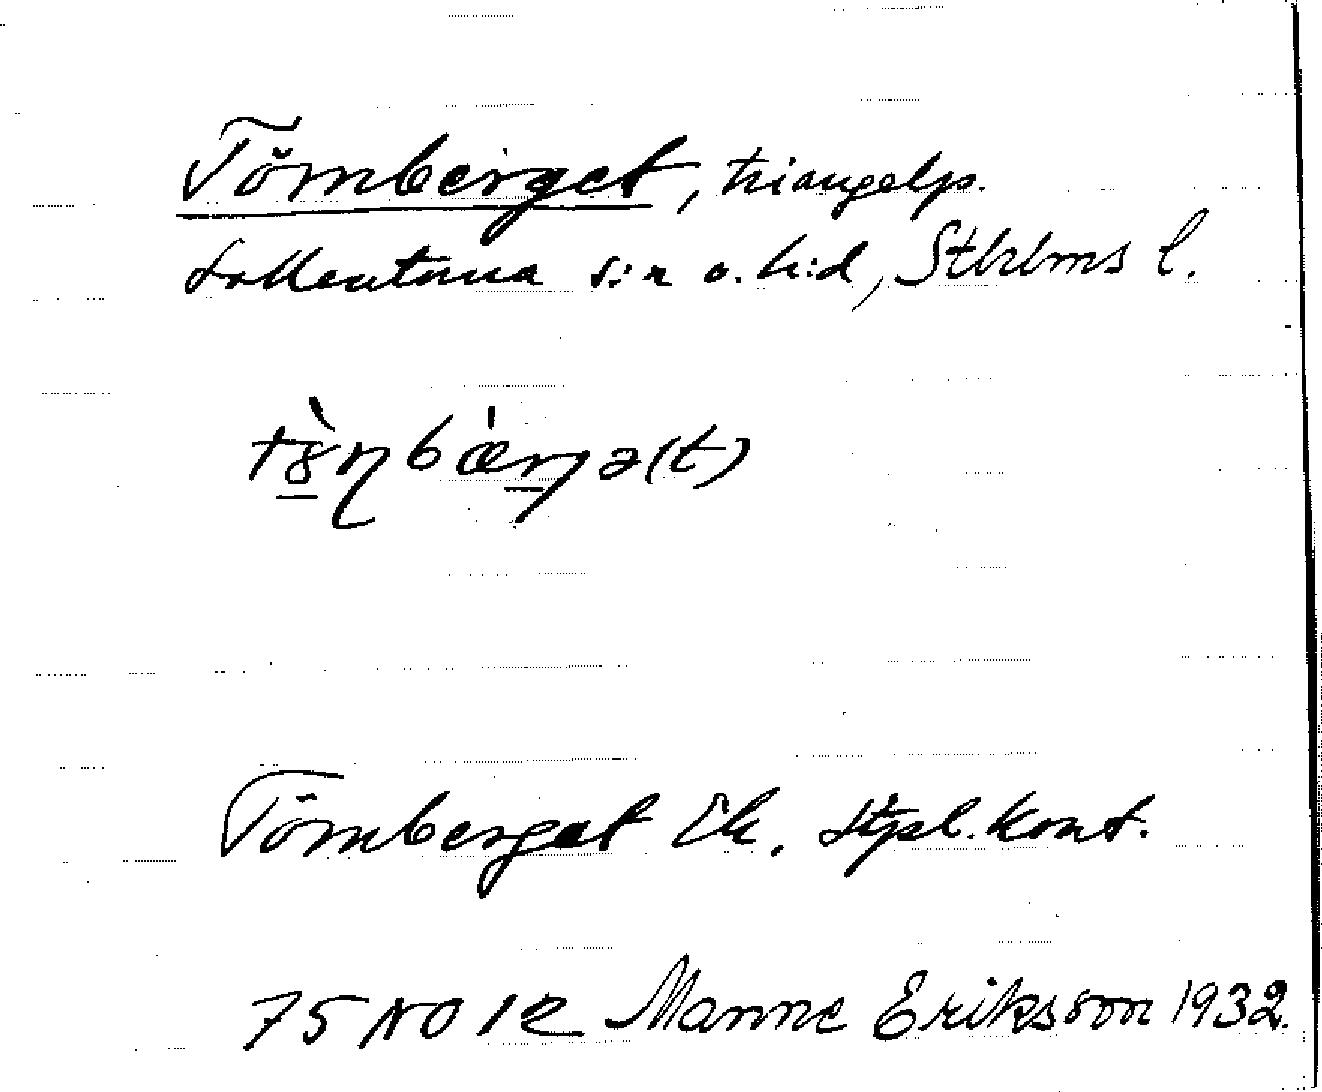 Törnberget, triangelp.
Sollentuna s:n o. h:d, Sthlms l.
Törnberget Ek. stpl. kont.
75 NO 1e Manne Eriksson 1932.